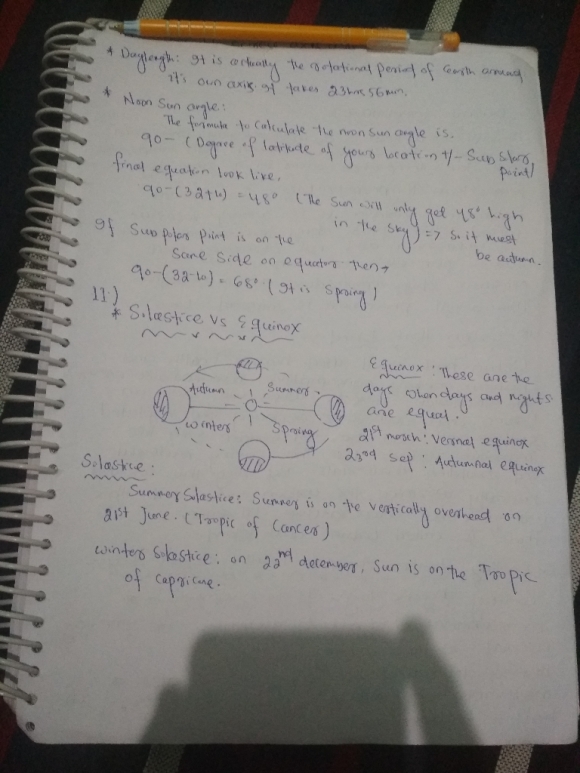 * Daylength: It is actually the rotational period of Earth around
it's own axis. It takes 23hrs 56min.
* Noon Sun angle:
The formula to calculate the noon sun angle is.
90- (Degree of latitude of your location +/- Sub Solar
point)
final equation look like.
90-(32+10) = 48° (The Sun will only get 48° high
in the sky) => So it must
be autumn.
If Sub polar point is on the
Same Side on equator then→
90-(32-10) = 68° (It is Spring)
II.)
* Solastice vs Equinox
Autumn
Summer
Winter
Spring
Equinox: These are the
days when days and nights
are equal.
21st march: Vernal equinox
23rd Sep: Autumnal equinox
Solastice:
Summer Solastice: Summer is on the vertically overhead on
21st June. (Tropic of Cancer)
Winter Solastice: on 22nd december, Sun is on the Tropic
of capricone.